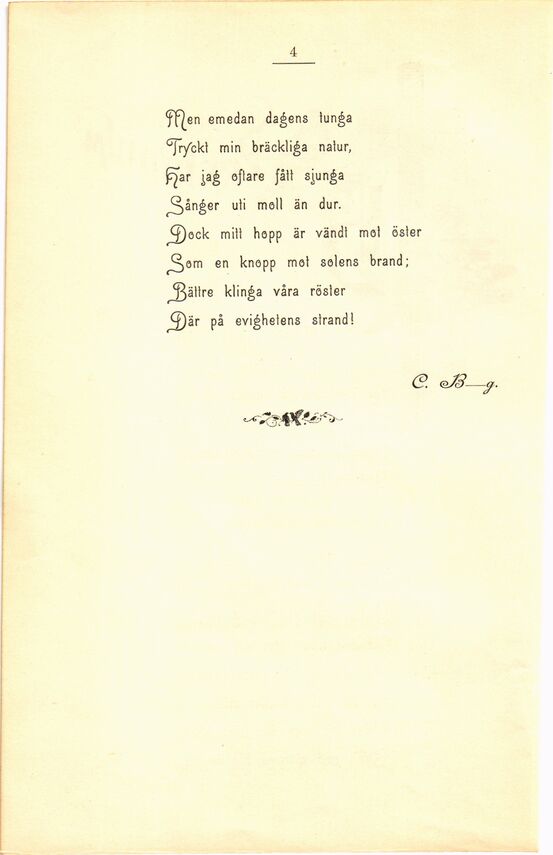 4
Men emedan dagens tunga
Tryckt min bräckliga natur,
Har jag oftare fått sjunga
Sånger uti moll än dur.
Dock mitt hopp är vändt mot öster
Som en knopp mot solens brand;
Bättre klinga våra röster
Där på evighetens strand!
C. B—g.